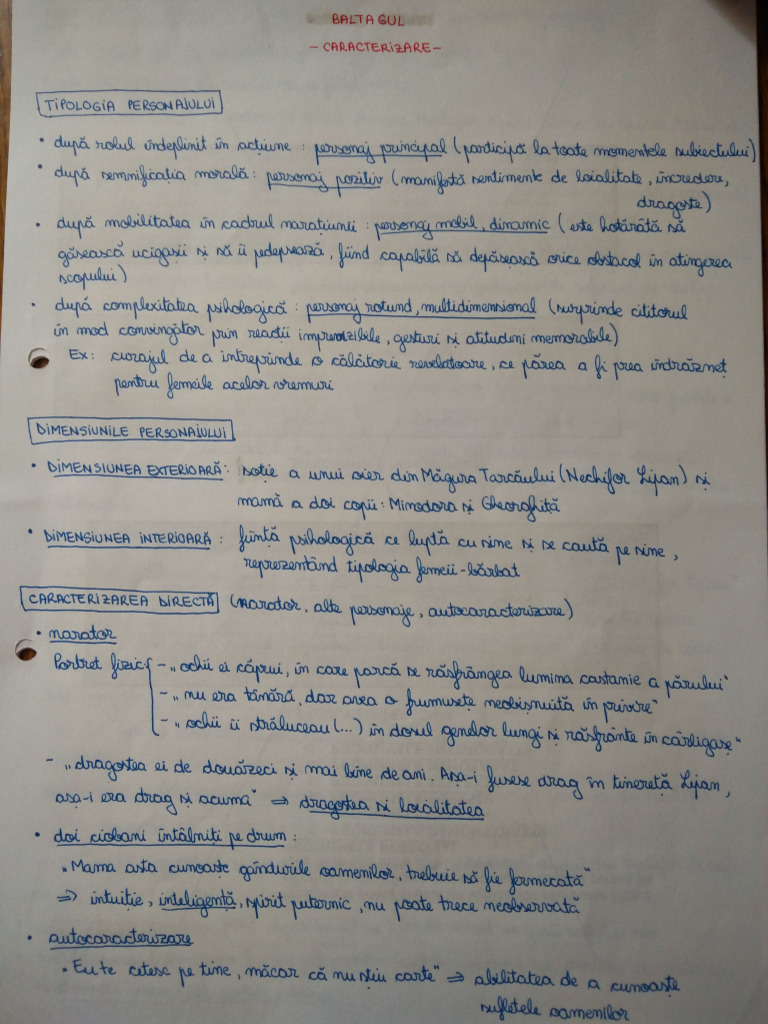 BALTAGUL
- CARACTERIZARE -
TIPOLOGIA PERSONAJULUI
• după rolul îndeplinit în acțiune : personaj principal (participă la toate momentele subiectului)
• după semnificația morală : personaj pozitiv (manifestă sentimente de loialitate, încredere,
dragoste)
• după mobilitatea în cadrul narațiunii : personaj mobil, dinamic (este hotărâtă să
găsească ucigașii și să îi pedepsează, fiind capabilă să depășească orice obstacol în atingerea
scopului)
• după complexitatea psihologică : personaj rotund, multidimensional (surprinde cititorul
în mod convingător prin reacții imprevizibile, gesturi și atitudini memorabile)
Ex: curajul de a întreprinde o călătorie revelatoare, ce părea a fi prea îndrăzneț
pentru femeile acelor vremuri
DIMENSIUNILE PERSONAJULUI
• DIMENSIUNEA EXTERIOARĂ : soție a unui oier din Măgura Tarcăului (Nechifor Lipan) și
mamă a doi copii : Minodora și Gheorghiță
• DIMENSIUNEA INTERIOARĂ : ființă psihologică ce luptă cu sine și se caută pe sine,
reprezentând tipologia femeii-bărbat
CARACTERIZAREA DIRECTĂ (narator, alte personaje, autocaracterizare)
• narator
Portret fizic { - „ochii ei căprui, în care parcă se răsfrângea lumina castanie a părului"
- „nu era tânără, dar avea o frumusețe neobișnuită în privire"
- „ochii îi străluceau (...) în dosul genelor lungi și răsfrânte în cârligașe"
- „dragostea ei de douăzeci și mai bine de ani. Așa-i fusese drag în tinereță Lipan,
așa-i era drag și acuma" ⇒ dragostea și loialitatea
• doi ciobani întâlniți pe drum :
„Mama asta cunoaște gândurile oamenilor, trebuie să fie fermecată"
⇒ intuiție, inteligență, spirit puternic, nu poate trece neobservată
• autocaracterizare
„Eu te citesc pe tine, măcar că nu știu carte" ⇒ abilitatea de a cunoaște
sufletele oamenilor